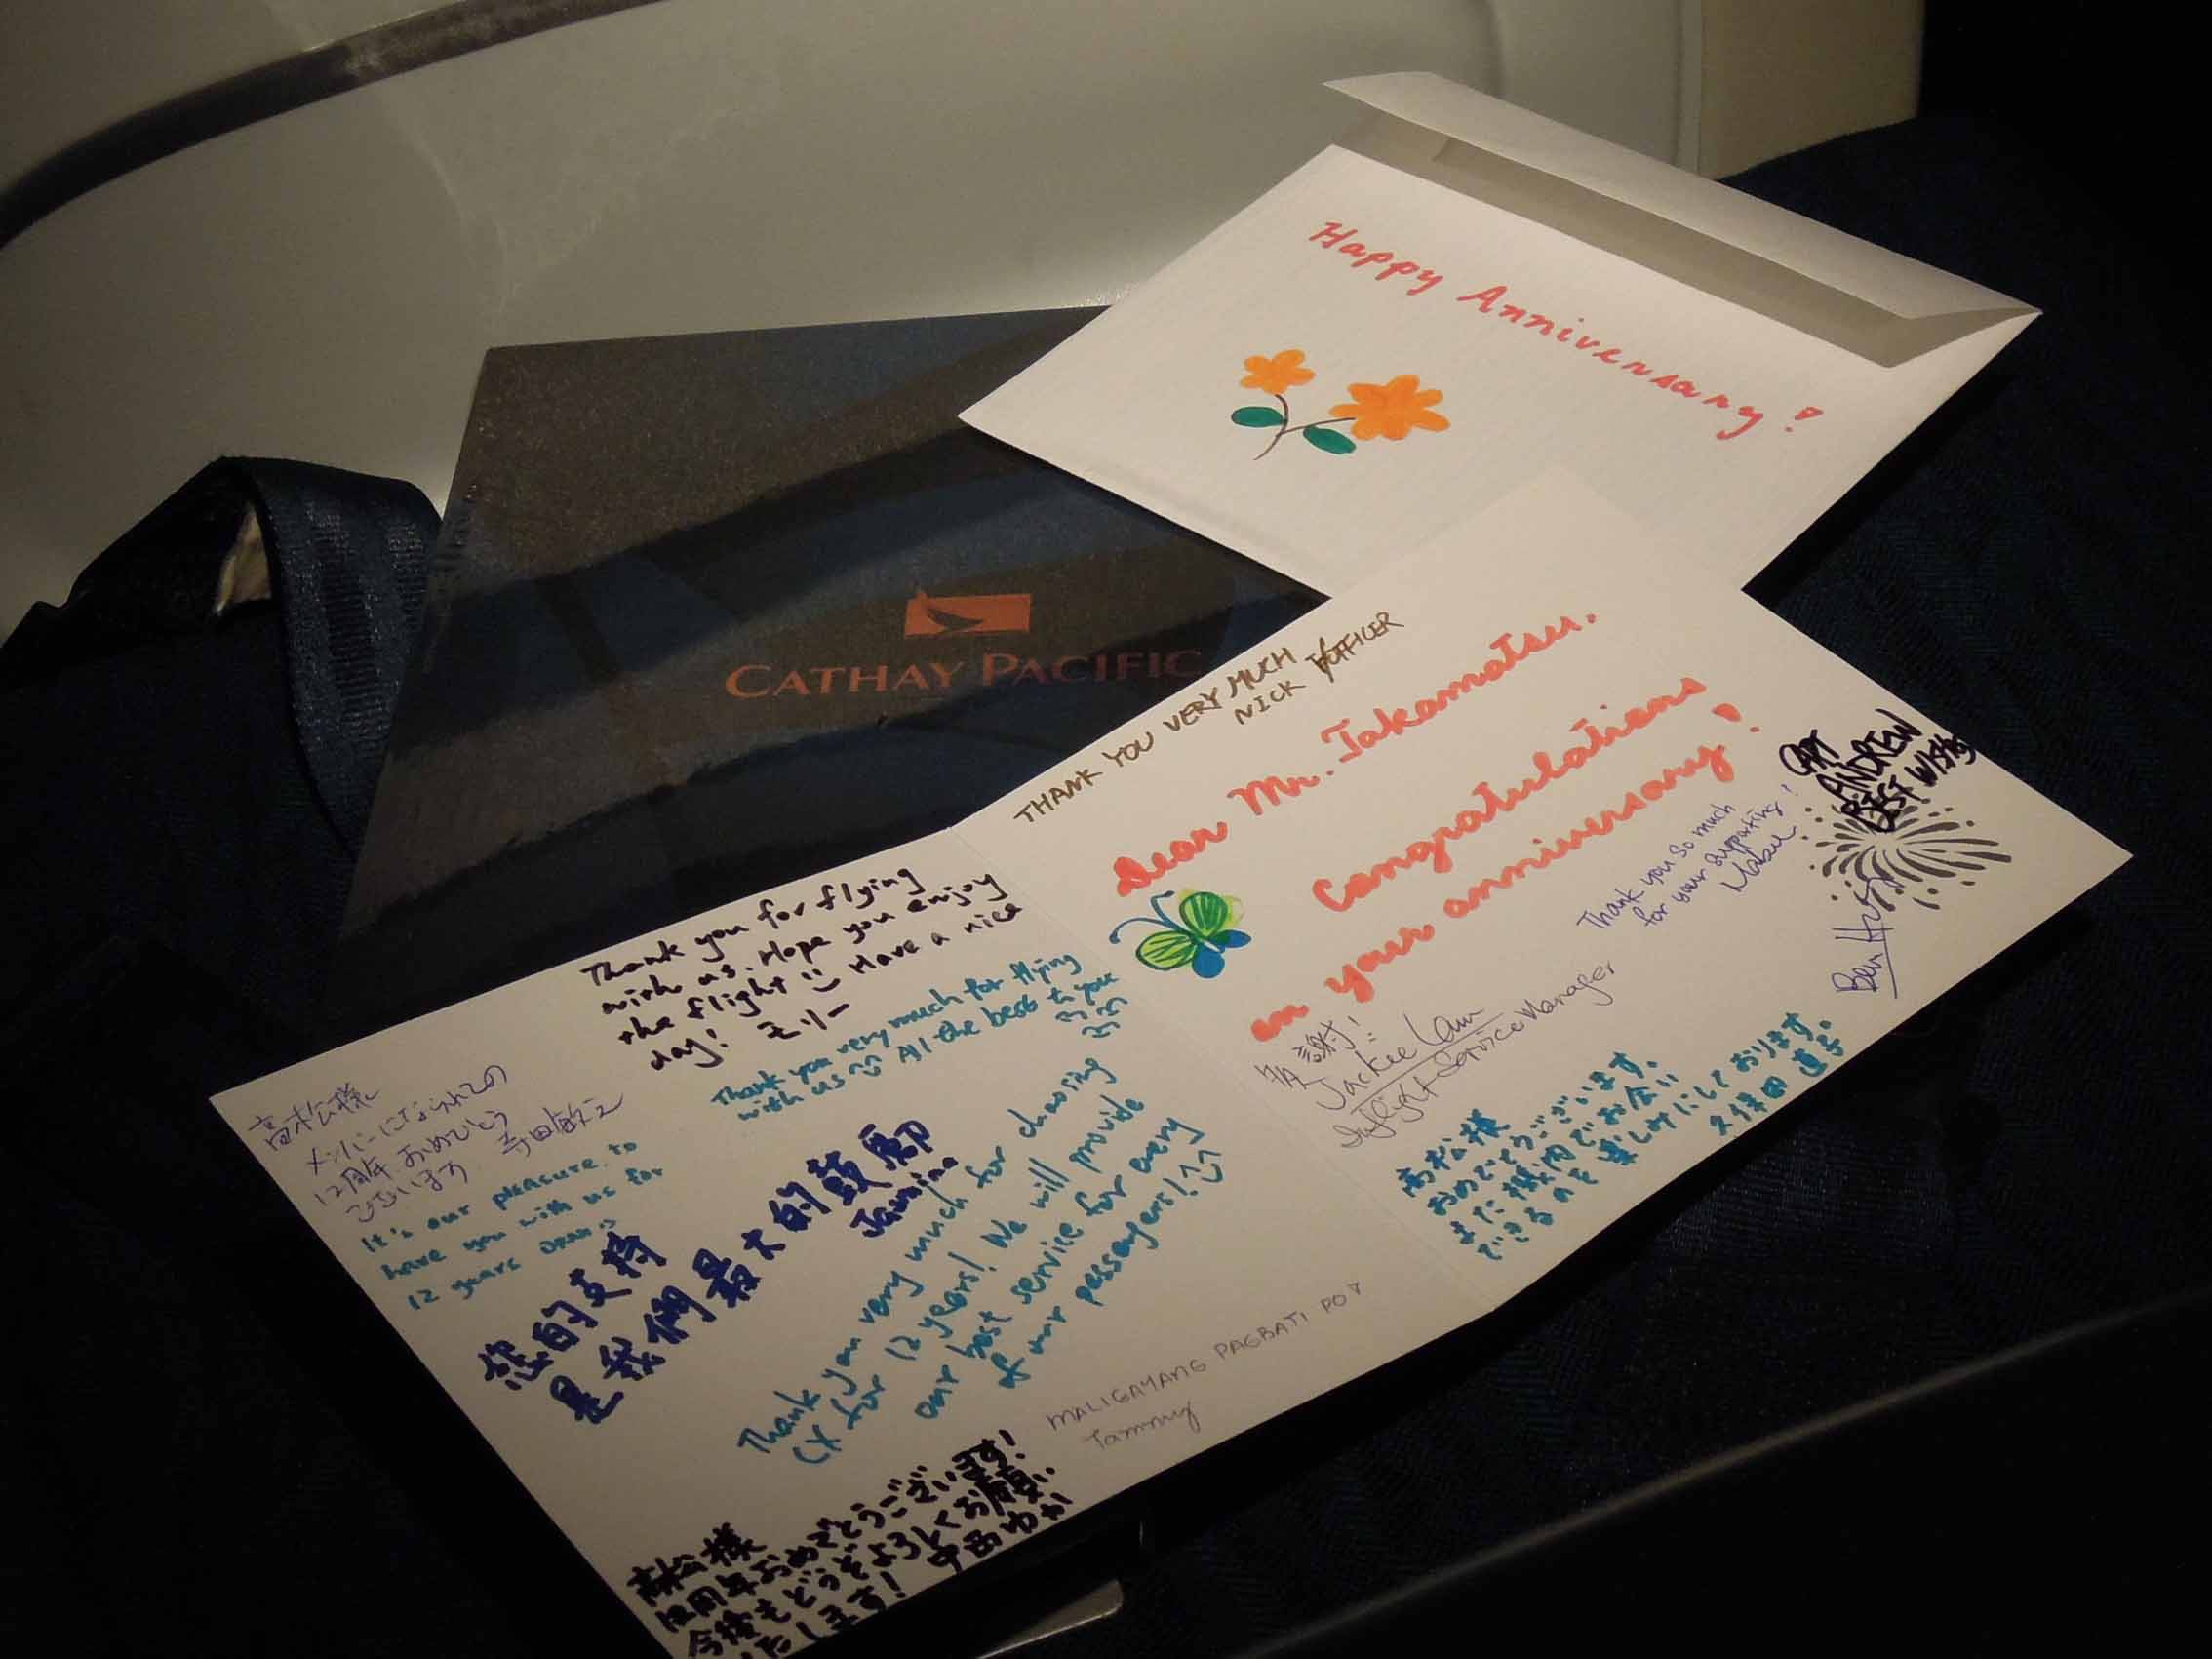 Happy Anniversary!
CATHAY PACIFIC
THANK YOU VERY MUCH
NICK
Dear Mr. Takamatsu.
Congratulations
on your anniversary!
CAPT
ANDREW
BEST WISHES
Thank you so much
for your supporting!
Mabel
Jackie Lam
Inflight Service Manager
高松様
おめでとうございます。
また機内でお会い
できるのを楽しみにしております。
久保田 直子
Thank you for flying
with us. Hope you enjoy
the flight Have a nice
day! モリー
Thank you very much for flying
with us All the best to you
高松様
メンバーになられての
12周年おめでとう
ございます 寺田
It's our pleasure to
have you with us for
12 years
您的支持
是我們最大的鼓勵
Janine
Thank you very much for choosing
CX for 12 years! We will provide
our best service for every
of our passengers!
MALIGAYANG PAGBATI PO
Tammy
高松様
12周年おめでとうございます!
今後もどうぞよろしくお願い
いたします! 中西ゆか